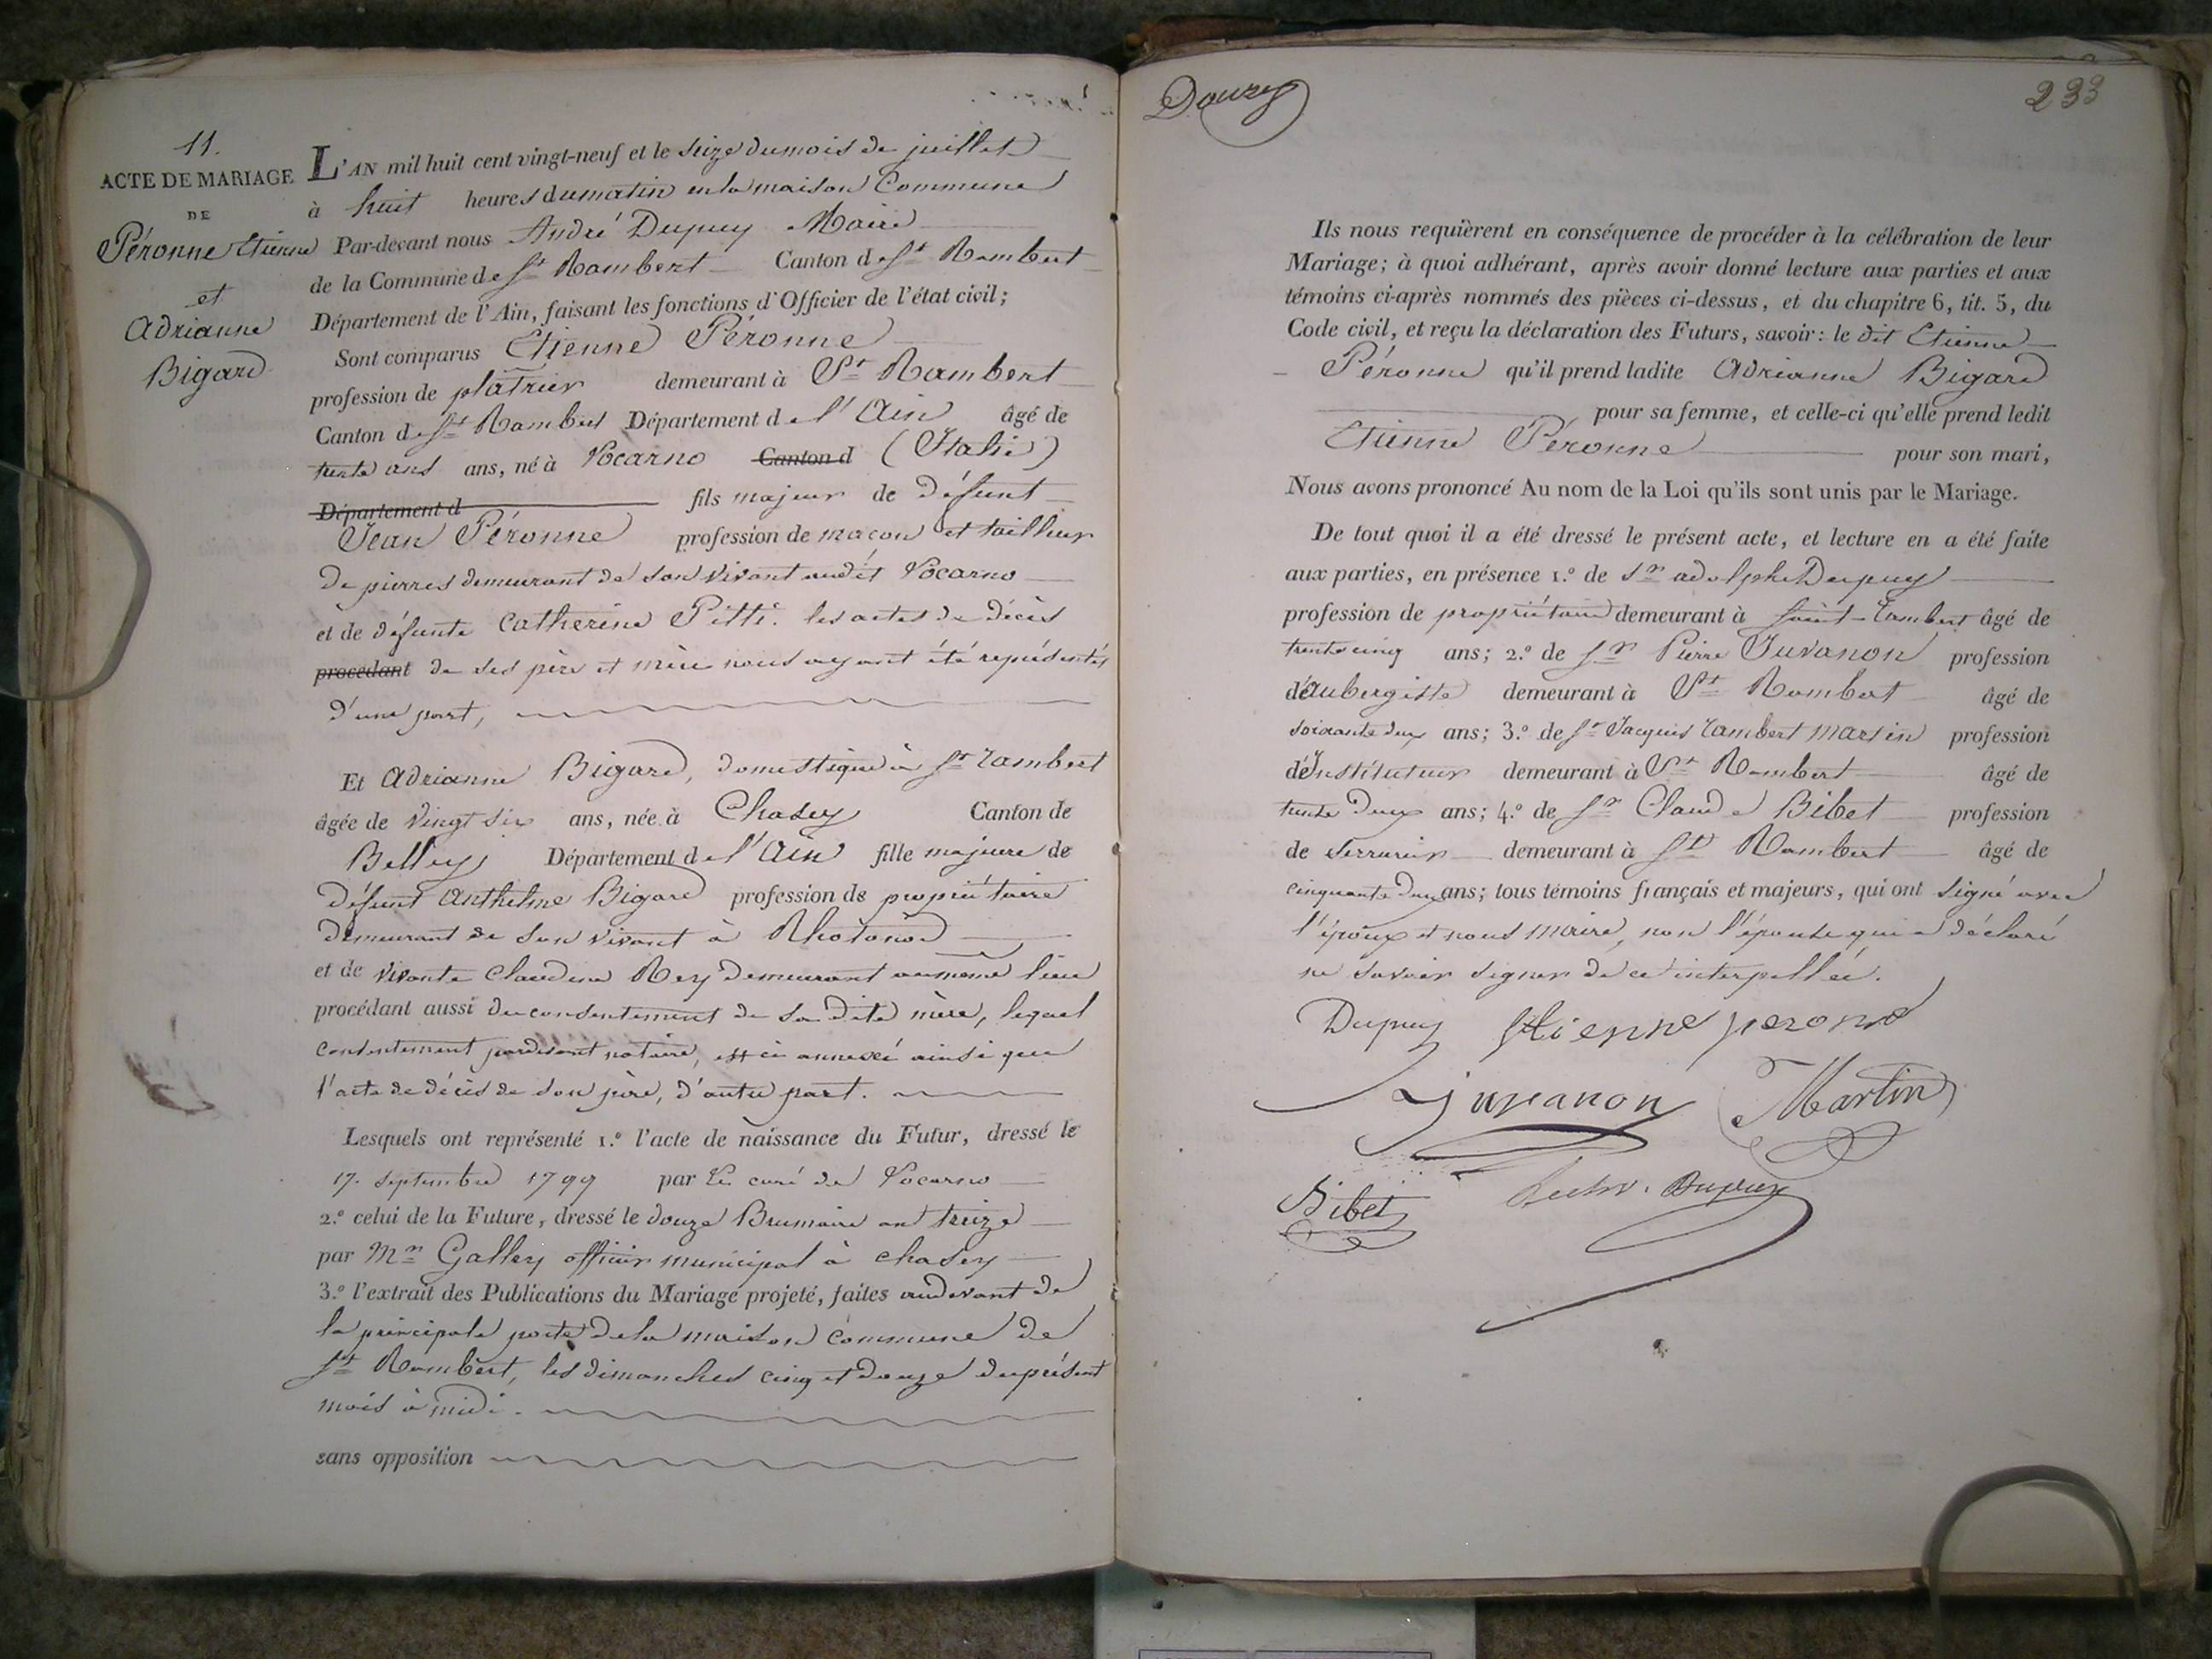 11.
ACTE DE MARIAGE
DE
Péronne Etienne
et
Adrianne
Bigard
L'AN mil huit cent vingt-neuf et le seize du mois de juillet
à huit heures du matin en la maison Commune
Par-devant nous André Dupuy Maire
de la Commune de St Rambert Canton de St Rambert
Département de l'Ain, faisant les fonctions d'Officier de l'état civil;
Sont comparus Etienne Péronne
profession de plâtrier demeurant à St Rambert
Canton de St Rambert Département de l'Ain âgé de
trente ans ans, né à Vocarno Canton d (Italie)
Département d fils majeur de défunt
Jean Péronne profession de maçon et tailleur
de pierres demeurant de son vivant audit Vocarno
et de défunte Catherine Pitti. les actes de décès
procédant de ses père et mère nous ayant été représentés
d'une part,
Et Adrianne Bigard, domestique à St rambert
âgée de vingt six ans, née à Chasey Canton de
Belley Département de l'Ain fille majeure de
défunt Anthelme Bigard profession de propriétaire
demeurant de son vivant à Rhotonod
et de vivante Claudine Rey demeurant au même lieu
procédant aussi du consentement de sa dite mère, lequel
consentement pardevant notaire, est ci annexé ainsi que
l'acte de décès de son père, d'autre part.
Lesquels ont représenté 1.º l'acte de naissance du Futur, dressé le
17. septembre 1799 par le curé de Vocarno
2.º celui de la Future, dressé le douze Brumaire an treize
par Mr Galley officier municipal à chasey
3.º l'extrait des Publications du Mariage projeté, faites audevant de
la principale porte de la maison commune de
St Rambert, les dimanches cinq et douze du présent
mois à midi.
sans opposition
233
Ils nous requièrent en conséquence de procéder à la célébration de leur
Mariage; à quoi adhérant, après avoir donné lecture aux parties et aux
témoins ci-après nommés des pièces ci-dessus, et du chapitre 6, tit. 5, du
Code civil, et reçu la déclaration des Futurs, savoir: le dit Etienne
Péronne qu'il prend ladite Adrianne Bigard
pour sa femme, et celle-ci qu'elle prend ledit
Etienne Péronne pour son mari,
Nous avons prononcé Au nom de la Loi qu'ils sont unis par le Mariage.
De tout quoi il a été dressé le présent acte, et lecture en a été faite
aux parties, en présence 1.º de Sr adolphe Dupuy
profession de propriétaire demeurant à Saint-rambert âgé de
trente cinq ans; 2.º de Sr Pierre Juvanon profession
d'aubergiste demeurant à St Rambert âgé de
soixante deux ans; 3.º de Sr Jacques rambert martin profession
d'Instituteur demeurant à St Rambert âgé de
trente deux ans; 4.º de Sr Claude Bibet profession
de serrurier demeurant à St Rambert âgé de
cinquante deux ans; tous témoins français et majeurs, qui ont signé avec
l'époux et nous maire, non l'épouse qui a déclaré
ne savoir signer de ce interpellée.
Dupuy Etienne perone
Juvanon Martin
Bibet Dupuy